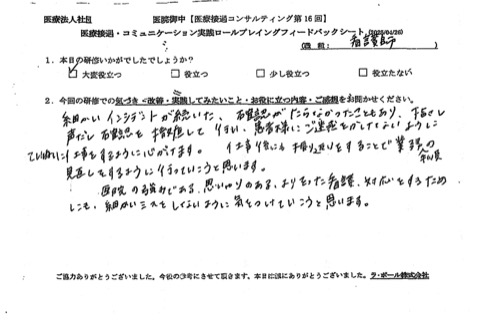 医療法人社団 医院御中【医療接遇コンサルティング第16回】
医療接遇・コミュニケーション実践ロールプレイングフィードバックシート (2025/04/26)
(職種: 看護師)
1. 本日の研修いかがでしたでしょうか?
☑大変役立つ □役立つ □少し役立つ □役立たない
2. 今回の研修での気づき・改善・実践してみたいこと・お役に立つ内容・ご感想をお聞かせください。
細かいインシデントが続いた、確認がたらなかったこともあり、指さし
声だし確認を徹底して行い、患者様にご迷惑をかけないように
ていねいに仕事をするように心がけます。 仕事後にも振り返りをすることで業務の
見直しをするように行っていこうと思います。
医院の強みである、思いやりのある、よりそった看護、対応をするため
にも、細かいミスをしないように気をつけていこうと思います。
ご協力ありがとうございました。今後の参考にさせて頂きます。本日は誠にありがとうございました。ラ・ポール株式会社